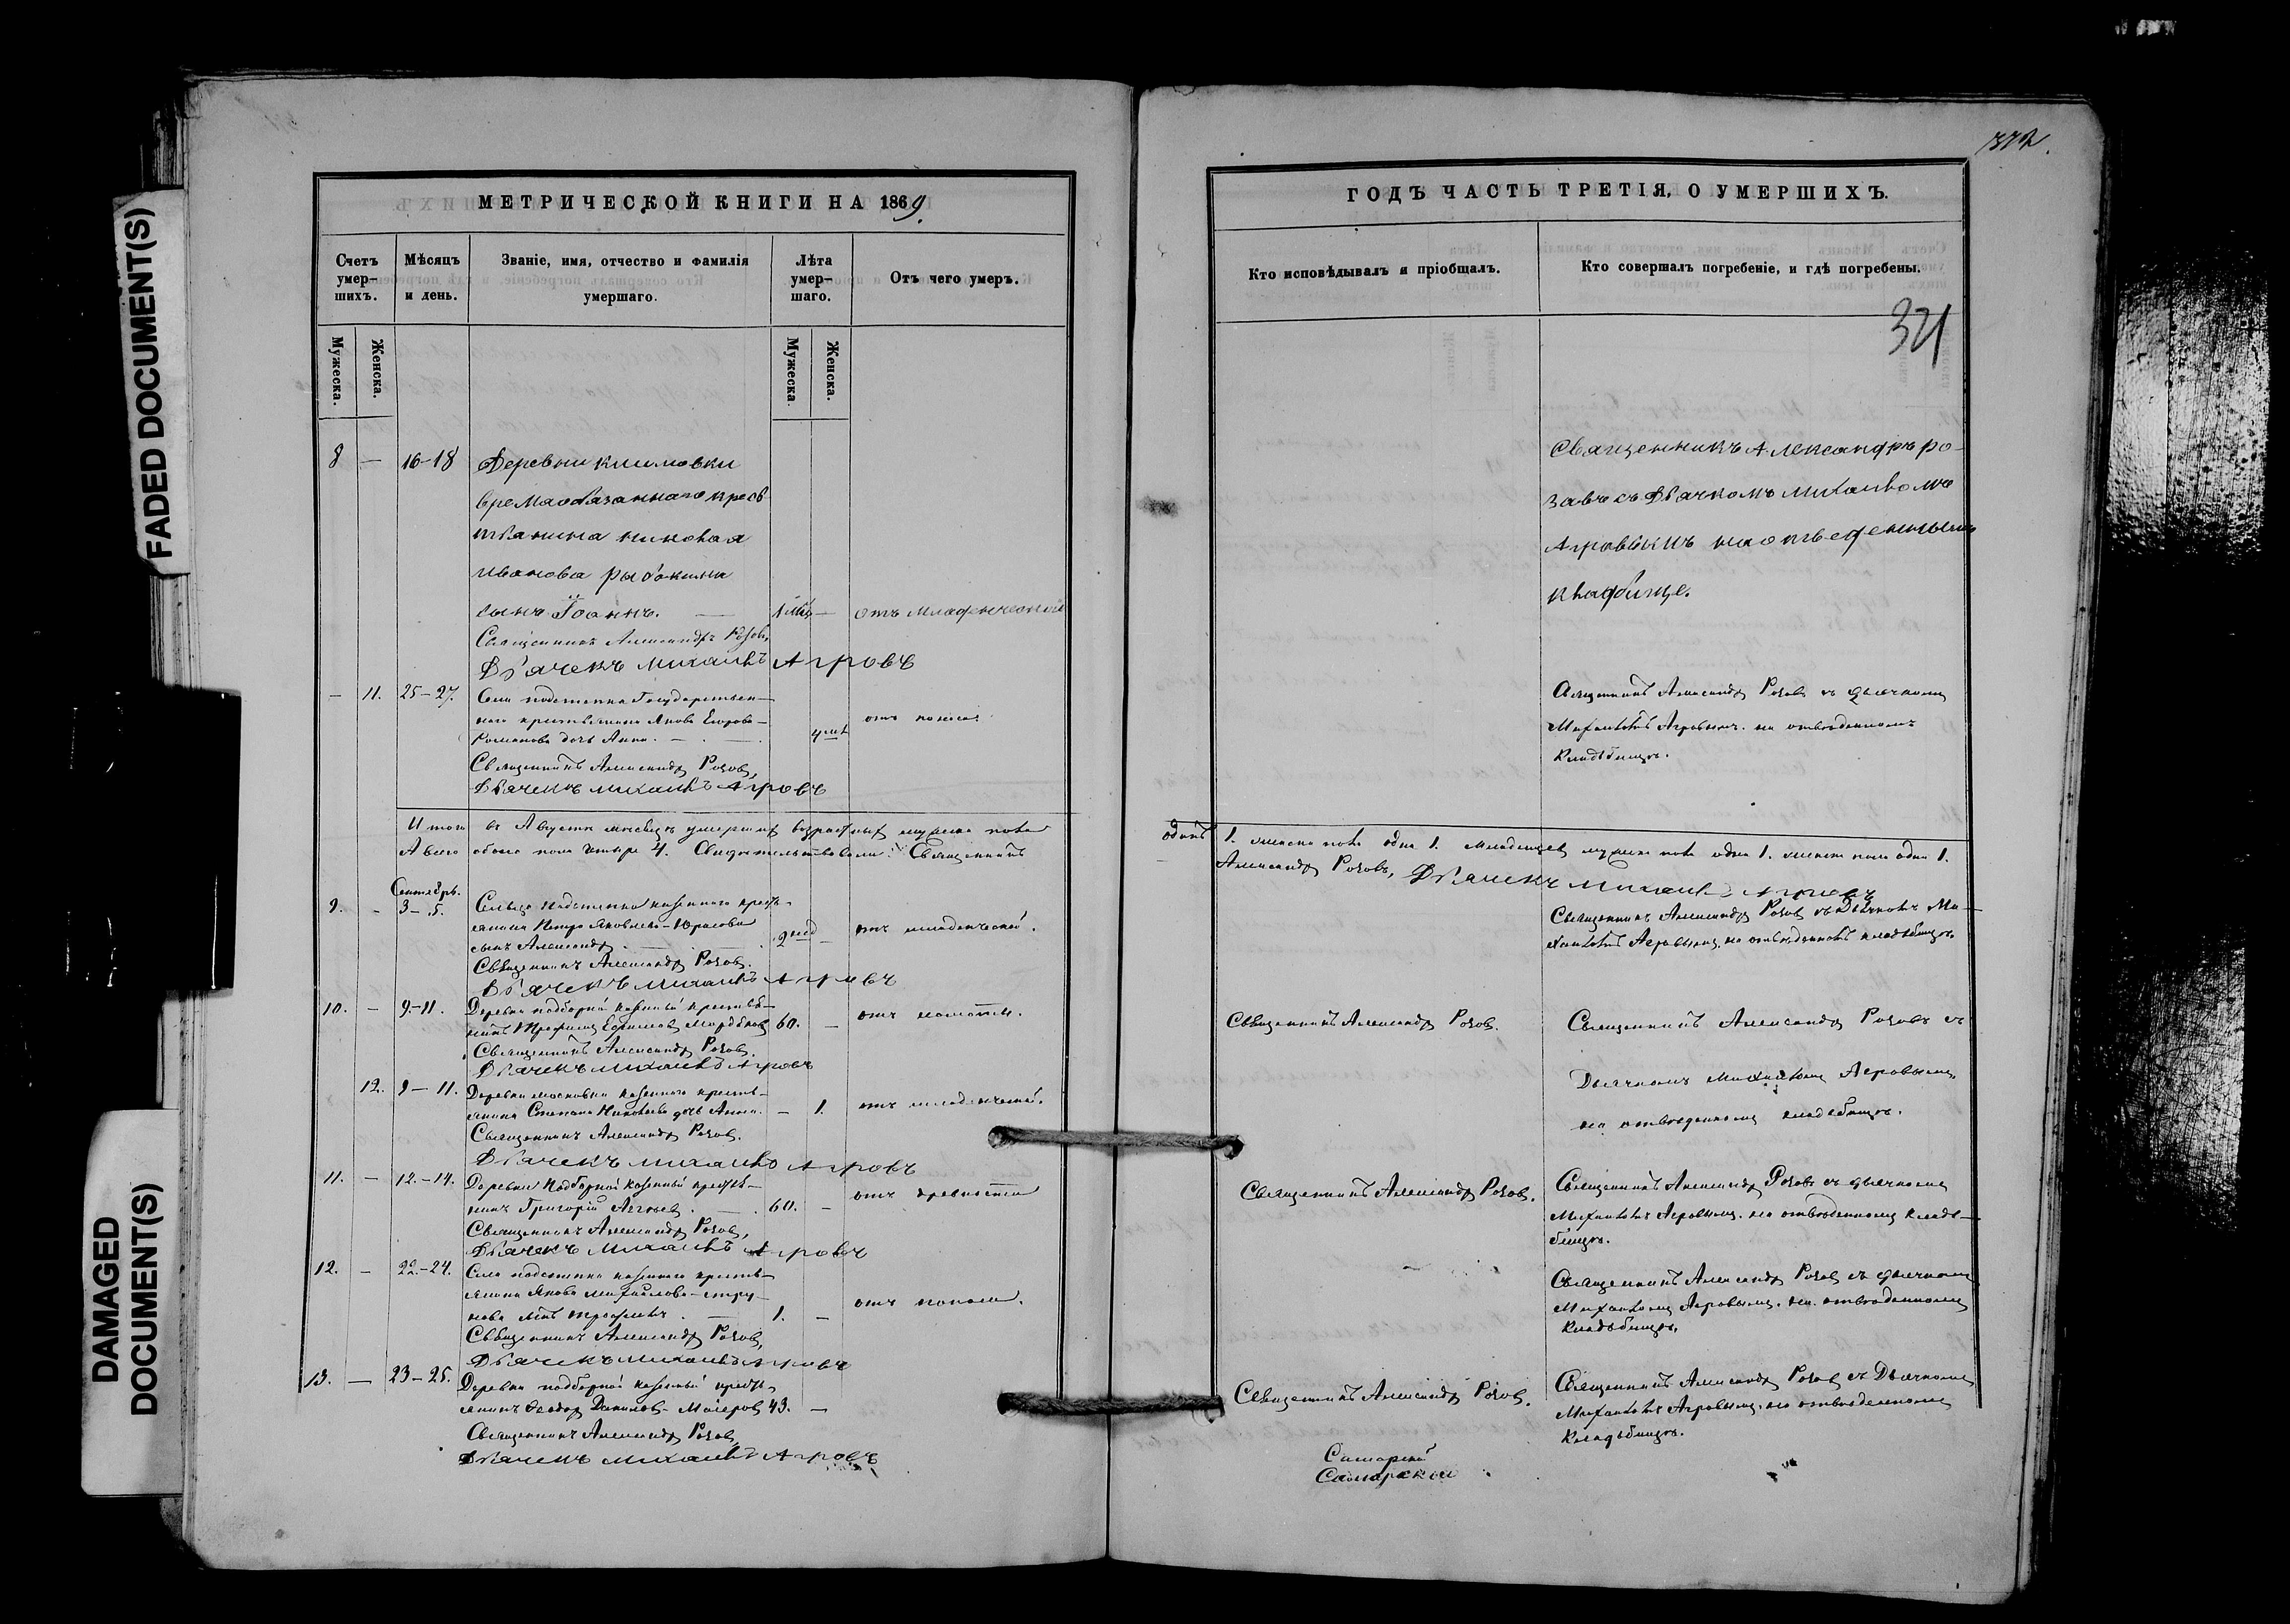 FADED DOCUMENT(S)
DAMAGED
DOCUMENT(S)
МЕТРИЧЕСКОЙ КНИГИ НА 1869.
Счетъ умер-шихъ.
Мѣсяцъ и день.
Званіе, имя, отчество и фамилія умершаго.
Лѣта умер-шаго.
Отъ чего умеръ.
Мужеска.
Женска.
Мужеска.
Женска.
8 — 16-18 Деревни Климовки
времяобязаннаго крес
тьянина николая
Иванова рыбакина
сынъ Іоаннъ. — 1 мѣс — отъ младенческой
Священникъ Александръ Розовъ,
Дьячекъ Михаилъ Агровъ
— 11. 25-27. Села подстепка Государствен-
наго крестьянина Якова Егорова-
Романова дочь Анна. — 4 отъ поноса
Священникъ Александр Розов,
Дьячекъ михаилъ Агровъ
Итого въ Августѣ мѣсяцѣ умершихъ возрастныхъ мужеска пола
А всего обоего пола четыре 4. Свидетельствовали: Священникъ
Сентябрь.
9. — 3-5. Сельца подстепка казеннаго кресть-
янина Петра Яковлева
сынъ Александр — 2 нед — отъ младенческой.
Священникъ Александр Розов.
Дьячекъ Михаилъ Агровъ
10. — 9-11. Деревни подборной казенный крестья-
нинъ Ефимов 60. — отъ
Священникъ Александр Розов.
Дьячекъ михаилъ Агровъ
12. 9-11. Деревни московки казеннаго кресть-
янина Степана дочь Анна. — 1. отъ младенческой.
Священникъ Александр Розов.
Дьячекъ михаилъ Агровъ
11. — 12.-14. Деревни Подборной казенный крестья-
нинъ Григорій 60. — отъ древности
Священникъ Александр Розов,
Дьячекъ Михаилъ Агровъ
12. — 22.-24. Села подстепки казеннаго кресть-
янина Якова Михайлова 
1. — отъ поноса.
Священникъ Александр Розов,
Дьячекъ михаилъ Агровъ
13. — 23-25. Деревни подборной казенный кресть-
янинъ Феодор Данилов 43. —
Священникъ Александр Розов,
Дьячекъ михаилъ Агровъ
ГОДЪ ЧАСТЬ ТРЕТІЯ, О УМЕРШИХЪ.
Кто исповѣдывалъ и пріобщалъ.
Кто совершалъ погребеніе, и гдѣ погребены.
321
Священникъ Александръ ро-
зовъ съ дьячкомъ михаиломъ
Агровымъ на отведенномъ
кладбище.
Священникъ Александр Розов съ дьячкомъ
Михаиломъ Агровымъ. на отведенномъ
кладбищѣ.
одинъ 1. женска пола одна 1. Младенцев мужска пола один 1. женска пола одна 1.
Александр Розовъ, Дьячекъ Михаилъ Агровъ
Священникъ Александр Розов съ дьячкомъ Ми-
хаиломъ Агровымъ, на отведенномъ кладбищѣ.
Священникъ Александр Розов. Священникъ Александр Розовъ съ
Дьячкомъ Михаиломъ Агровымъ,
на отведенномъ кладбищѣ.
Священникъ Александр Розов. Священникъ Александр Розовъ съ дьячкомъ
Михаиломъ Агровымъ. на отведенномъ кладъ-
бищѣ.
Священникъ Александр Розов съ дьячкомъ
Михаиломъ Агровымъ. на отведенномъ
кладбищѣ.
Священникъ Александр Розов. Священникъ Александр Розов съ Дьячкомъ
Михаиломъ Агровымъ, на отведенномъ
Кладбищѣ.
Самарской
Самарской